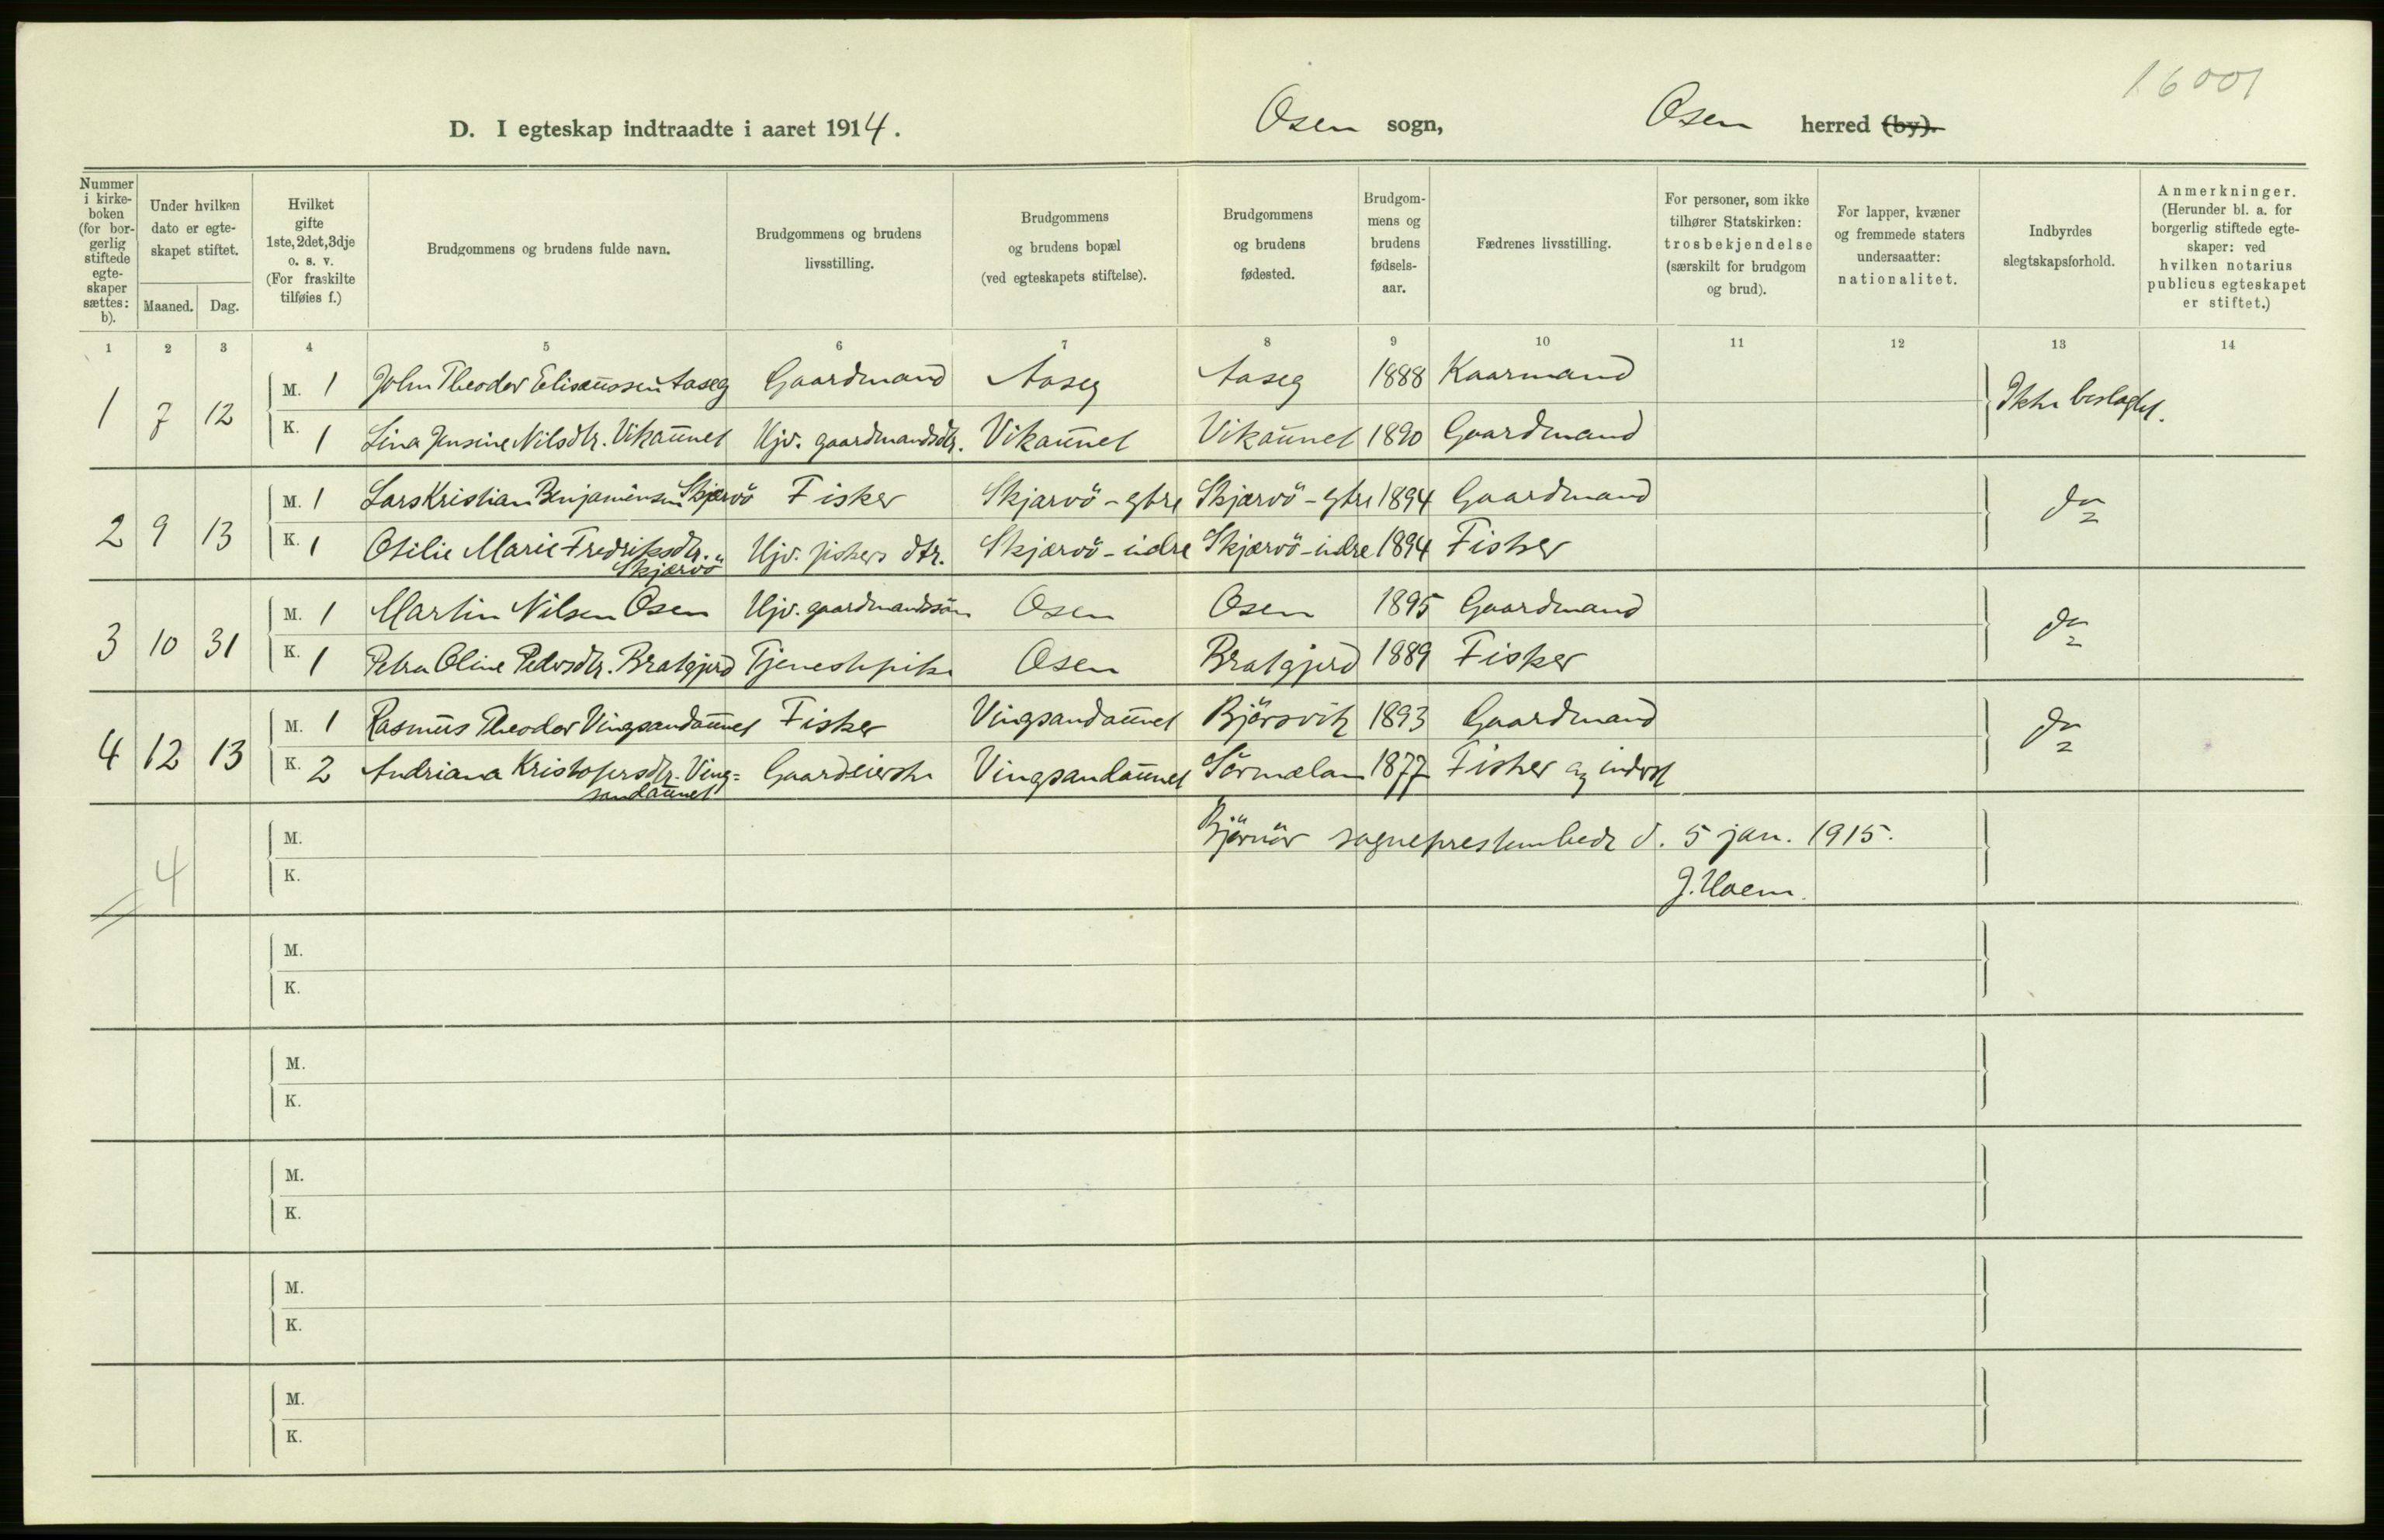 16001
D. I egteskap indtraadte i aaret 1914. Osen sogn, Osen herred (by).
Nummer i kirke-boken (for bor-gerlig stiftede egte-skaper sættes: b).
Under hvilken dato er egte-skapet stiftet.
Maaned. Dag.
Hvilket gifte 1ste, 2det, 3dje o. s. v. (For fraskilte tilføies f.)
Brudgommens og brudens fulde navn.
Brudgommens og brudens livsstilling.
Brudgommens og brudens bopæl (ved egteskapets stiftelse).
Brudgommens og brudens fødested.
Brudgom-mens og brudens fødsels-aar.
Fædrenes livsstilling.
For personer, som ikke tilhører Statskirken: trosbekjendelse (særskilt for brudgom og brud).
For lapper, kvæner og fremmede staters undersaatter: nationalitet.
Indbyrdes slegtskapsforhold.
Anmerkninger. (Herunder bl. a. for borgerlig stiftede egte-skaper: ved hvilken notarius publicus egteskapet er stiftet.)
1 2 3 4 5 6 7 8 9 10 11 12 13 14
1 7 12 M. 1 John Theodor Elisæussen Aaseg Gaardmand Aaseg Aaseg 1888 Kaarmand Ikke beslægtet.
K. 1 Lina Jensine Nilsdtr. Vikaunet Hjv. gaardmandsdtr. Vikaunet Vikaunet 1890 Gaardmand
2 9 13 M. 1 Lars Kristian Benjaminsen Skjærvö Fisker Skjærvö-ytre Skjærvö-ytre 1894 Gaardmand do
K. 1 Otilie Marie Fredriksdtr. Skjærvö Hjv. fiskers dtr. Skjærvö-indre Skjærvö-indre 1894 Fisker
3 10 31 M. 1 Martin Nilsen Osen Hjv. gaardmandssön Osen Osen 1895 Gaardmand do
K. 1 Petra Oline Pedersdtr. Bratgjerd Tjenestepike Osen Bratgjerd 1889 Fisker
4 12 13 M. 1 Rasmus Theodor Vingsandaunet Fisker Vingsandaunet Bjørsvik 1893 Gaardmand do
K. 2 Andriana Kristofersdtr. Ving=
sandaunet Gaardeierske Vingsandaunet Sörmelan 1877 Fisker og inderst
M. Bjørnör sogneprestembede d. 5 jan. 1915.
4 K. J. Hoem.
M.
K.
M.
K.
M.
K.
M.
K.
M.
K.